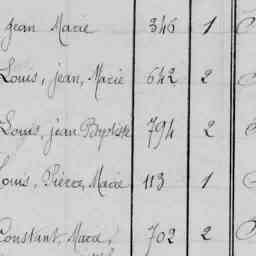 Jean Marie 346 1
Louis, Jean, Marie 642 2
Louis, Jean Baptiste 794 2
Louis, Pierre, Marie 113 1
Constant, Marie, 702 2